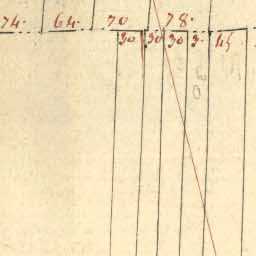 74. 64. 70 78.
30 30 30 3. 45
30